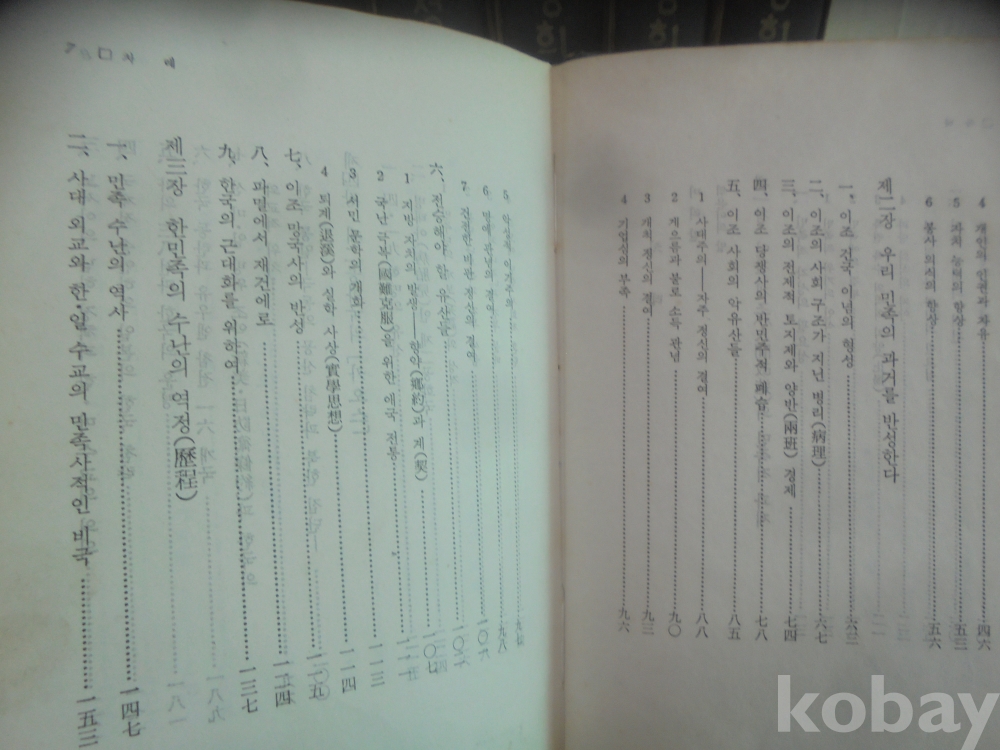 4 개인의 인권과 자유 四六
5 과학 능력의 향상 五三
6 봉사 의식의 향상 五六
제二장 우리 민족의 과거를 반성한다
一、이조 건국 이념의 형성 六三
二、이조의 사회 구조가 지닌 병리(病理) 六七
三、이조의 전제적 토지제와 양반(兩班) 경제 七四
四、이조 당쟁사의 반민주적 폐습 七八
五、이조 사회의 악유산들 八五
1 사대주의――자주 정신의 결여 八八
2 게으름과 불로 소득 관념 九〇
3 개척 정신의 결여 九三
4 기업심의 부족 九六
5 악성적 이기주의
6 명예 관념의 결여 九八
7 건전한 비판 정신의 결여 一〇六
六、전승해야 할 유산들 一〇七
1 지방 자치의 반성――향약(鄕約)과 계(契)
2 국난 극복(國難克服)을 위한 애국 전통 一一三
3 서민 문학의 개화 一一四
4 퇴계(退溪)와 실학 사상(實學思想)
七、이조 망국사의 반성
八、파멸에서 재건에로
九、한국의 근대화를 위하여 一三七
제三장 한민족의 수난의 역정(歷程)
一、민족 수난의 역사 一四七
二、사대 외교와 한·일 수교의 민족사적인 비극 一五三
7 □ 차 례
kobay